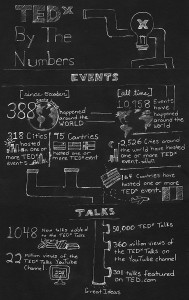 TEDx
By The
Numbers
EVENTS
since October
all time
388
happened
around the
WORLD
10,958
Events
happened
around the world
218 Cities
hosted
one or
more TEDx
events
75 Countries
hosted one or
more TEDx event
2,526 Cities around
the world have hosted
one or more
TEDx event
164 Countries have
hosted one or more
TEDx event
TALKS
1048
new talks added
to the TEDx
22
million views of the
TEDx Talks YouTube
Channel
50,000 TEDx Talks
360 million views
of the TEDx Talks on
the YouTube
Channel
321 talks
featured on
TED.com
Great Ideas